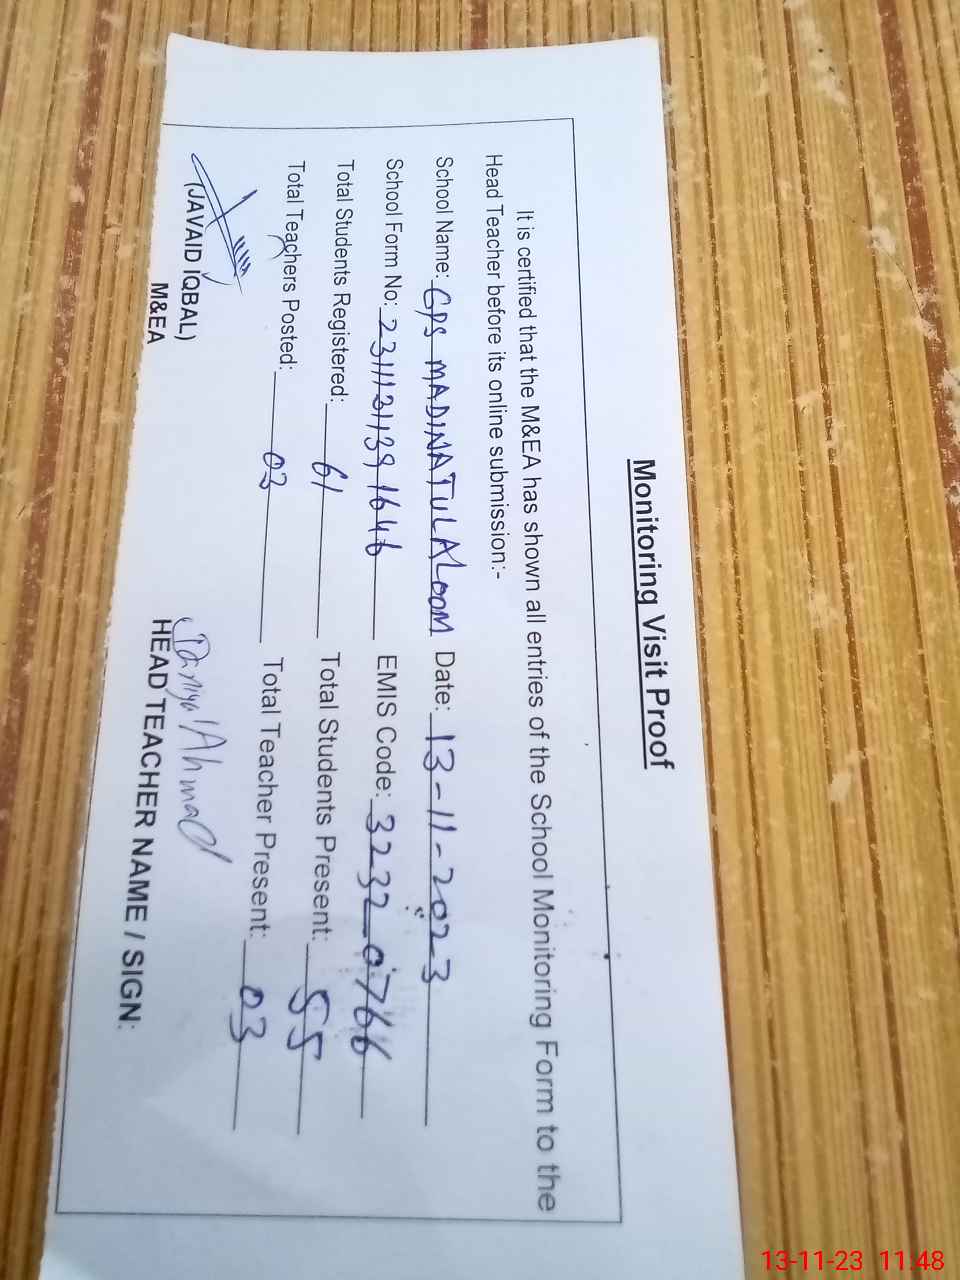 Monitoring Visit Proof
It is certified that the M&EA has shown all entries of the School Monitoring Form to the
Head Teacher before its online submission:-
School Name: GPS MADINATUL ALOOM Date: 13-11-2023
School Form No: 23111311391646 EMIS Code: 32320766
Total Students Registered: 61 Total Students Present: 55
Total Teachers Posted: 03 Total Teacher Present: 03
Daniyal Ahmad
(JAVAID IQBAL)
M&EA HEAD TEACHER NAME / SIGN:
13-11-23 11:48